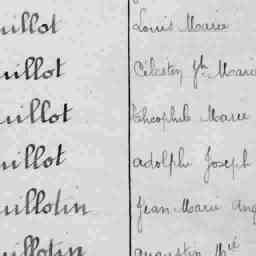 uillot Louis Marie
uillot Célestin Jh Marie
uillot Théophile Marie
uillot Adolphe Joseph
uillotin Jean Marie Ang
uillotin Augustin Mie